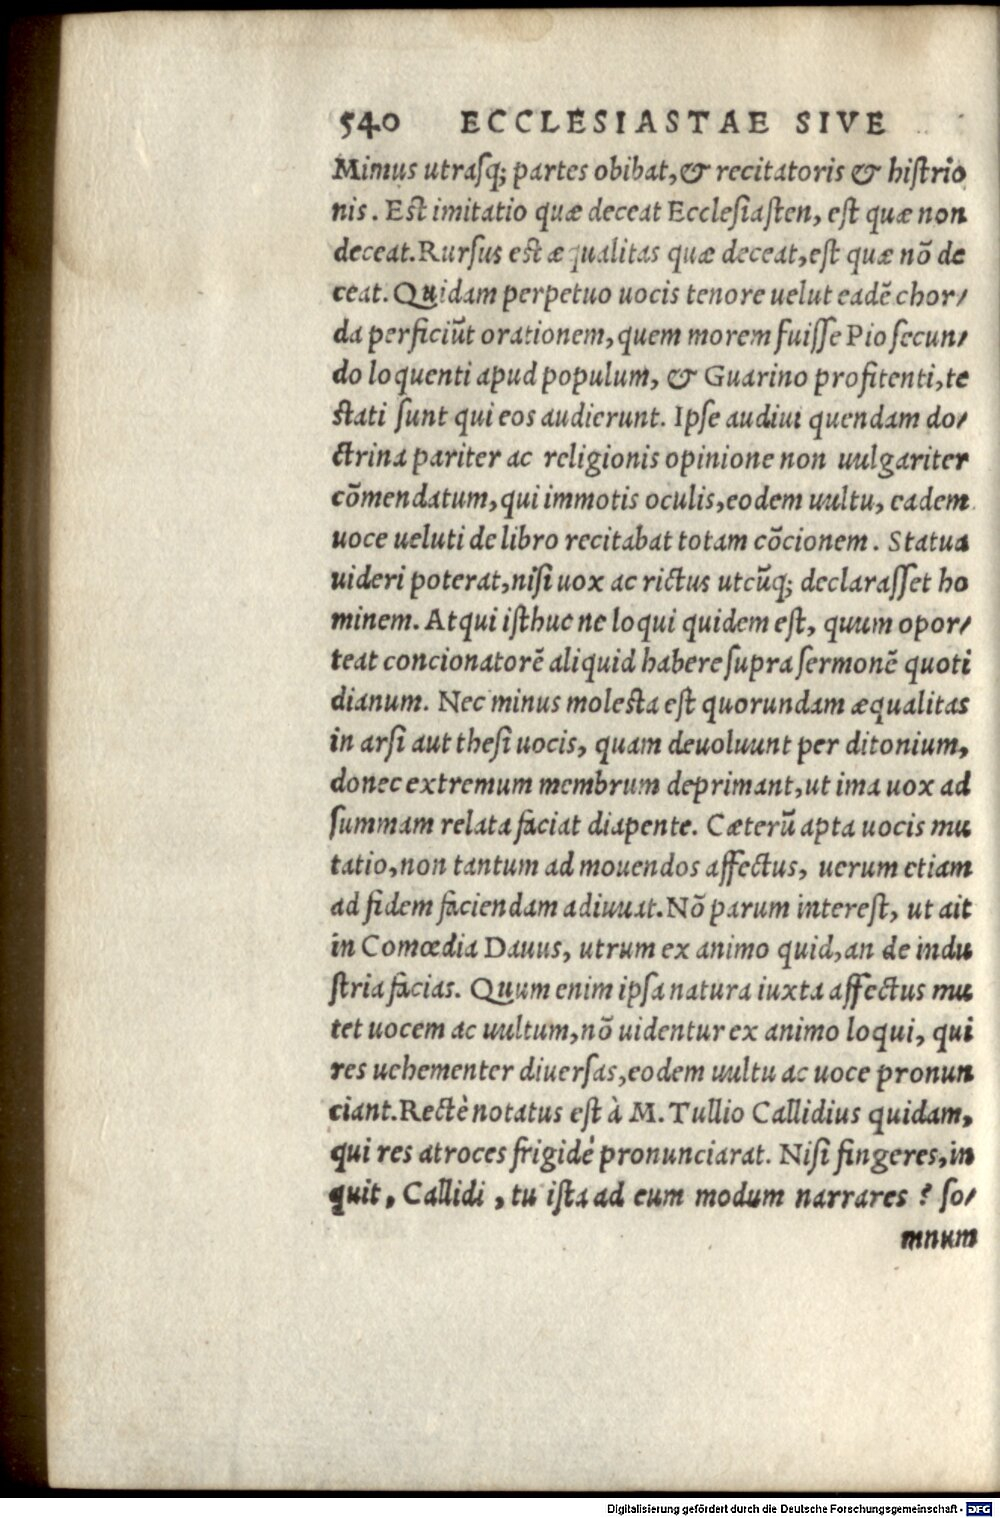 540 ECCLESIASTAE SIVE
Mimus utrasq; partes obibat, & recitatoris & histrio
nis. Est imitatio quæ deceat Ecclesiasten, est quæ non
deceat. Rursus est æqualitas quæ deceat, est quæ nō de
ceat. Quidam perpetuo uocis tenore uelut eadē chor/
da perficiūt orationem, quem morem fuisse Pio secun/
do loquenti apud populum, & Guarino profitenti, te
stati sunt qui eos audierunt. Ipse audiui quendam do/
ctrina pariter ac religionis opinione non uulgariter
cōmendatum, qui immotis oculis, eodem uultu, eadem
uoce ueluti de libro recitabat totam cōcionem. Statua
uideri poterat, nisi uox ac rictus utcūq; declarasset ho
minem. Atqui isthuc ne loqui quidem est, quum opor/
teat concionatorē aliquid habere supra sermonē quoti
dianum. Nec minus molesta est quorundam æqualitas
in arsi aut thesi uocis, quam deuoluunt per ditonium,
donec extremum membrum deprimant, ut ima uox ad
summam relata faciat diapente. Cæterū apta uocis mu
tatio, non tantum ad mouendos affectus, uerum etiam
ad fidem faciendam adiuuat. Nō parum interest, ut ait
in Comœdia Dauus, utrum ex animo quid, an de indu
stria facias. Quum enim ipsa natura iuxta affectus mu
tet uocem ac uultum, nō uidentur ex animo loqui, qui
res uehementer diuersas, eodem uultu ac uoce pronun
ciant. Rectè notatus est à M. Tullio Callidius quidam,
qui res atroces frigidè pronunciarat. Nisi fingeres, in
quit, Callidi, tu ista ad eum modum narrares? so/
mnum
Digitalisierung gefördert durch die Deutsche Forschungsgemeinschaft - DFG